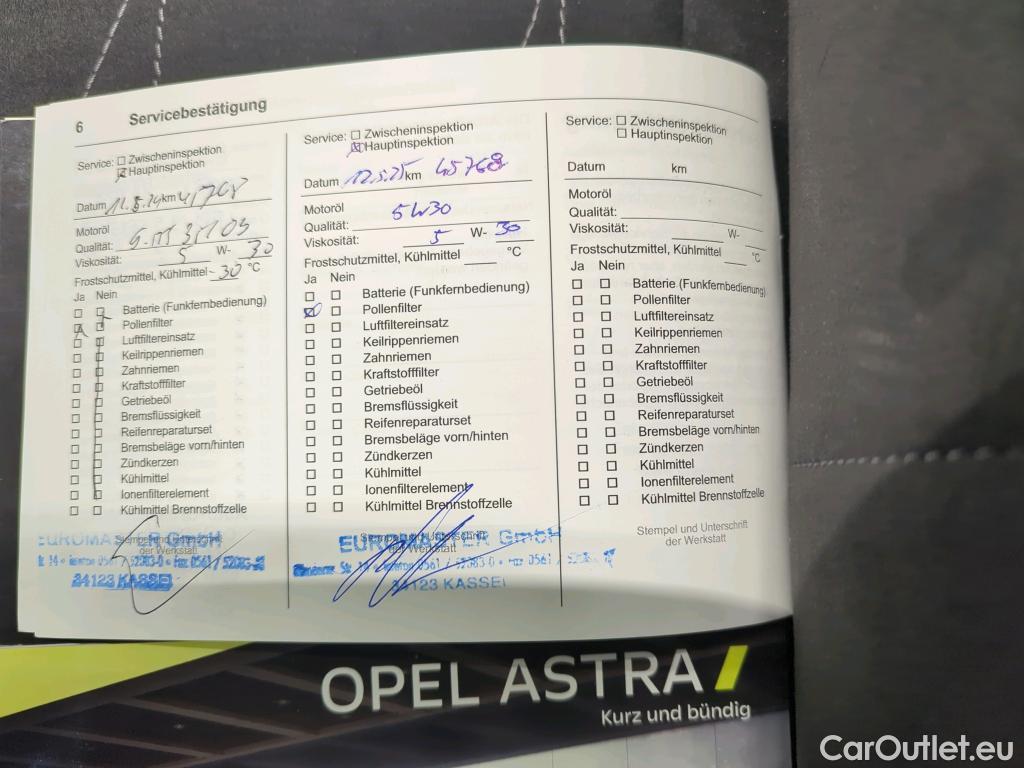 6 Servicebestätigung
Service: Zwischeninspektion
Hauptinspektion
Datum 12.5.24 km 41708
Motoröl
Qualität:
Viskosität: 5 W- 30
Frostschutzmittel, Kühlmittel -30 °C
Ja Nein
Batterie (Funkfernbedienung)
Pollenfilter
Luftfiltereinsatz
Keilrippenriemen
Zahnriemen
Kraftstofffilter
Getriebeöl
Bremsflüssigkeit
Reifenreparaturset
Bremsbeläge vorn/hinten
Zündkerzen
Kühlmittel
Ionenfilterelement
Kühlmittel Brennstoffzelle
Stempel und Unterschrift
der Werkstatt
EUROMASTER GmbH
34123 KASSEL
Service: Zwischeninspektion
Hauptinspektion
Datum 12.5.25 km 45768
Motoröl
Qualität: 5W30
Viskosität: 5 W- 30
Frostschutzmittel, Kühlmittel °C
Ja Nein
Batterie (Funkfernbedienung)
Pollenfilter
Luftfiltereinsatz
Keilrippenriemen
Zahnriemen
Kraftstofffilter
Getriebeöl
Bremsflüssigkeit
Reifenreparaturset
Bremsbeläge vorn/hinten
Zündkerzen
Kühlmittel
Ionenfilterelement
Kühlmittel Brennstoffzelle
Stempel und Unterschrift
der Werkstatt
EUROMASTER GmbH
34123 KASSEL
Service: Zwischeninspektion
Hauptinspektion
Datum km
Motoröl
Qualität:
Viskosität: W-
Frostschutzmittel, Kühlmittel °C
Ja Nein
Batterie (Funkfernbedienung)
Pollenfilter
Luftfiltereinsatz
Keilrippenriemen
Zahnriemen
Kraftstofffilter
Getriebeöl
Bremsflüssigkeit
Reifenreparaturset
Bremsbeläge vorn/hinten
Zündkerzen
Kühlmittel
Ionenfilterelement
Kühlmittel Brennstoffzelle
Stempel und Unterschrift
der Werkstatt
OPEL ASTRA
Kurz und bündig
CarOutlet.eu